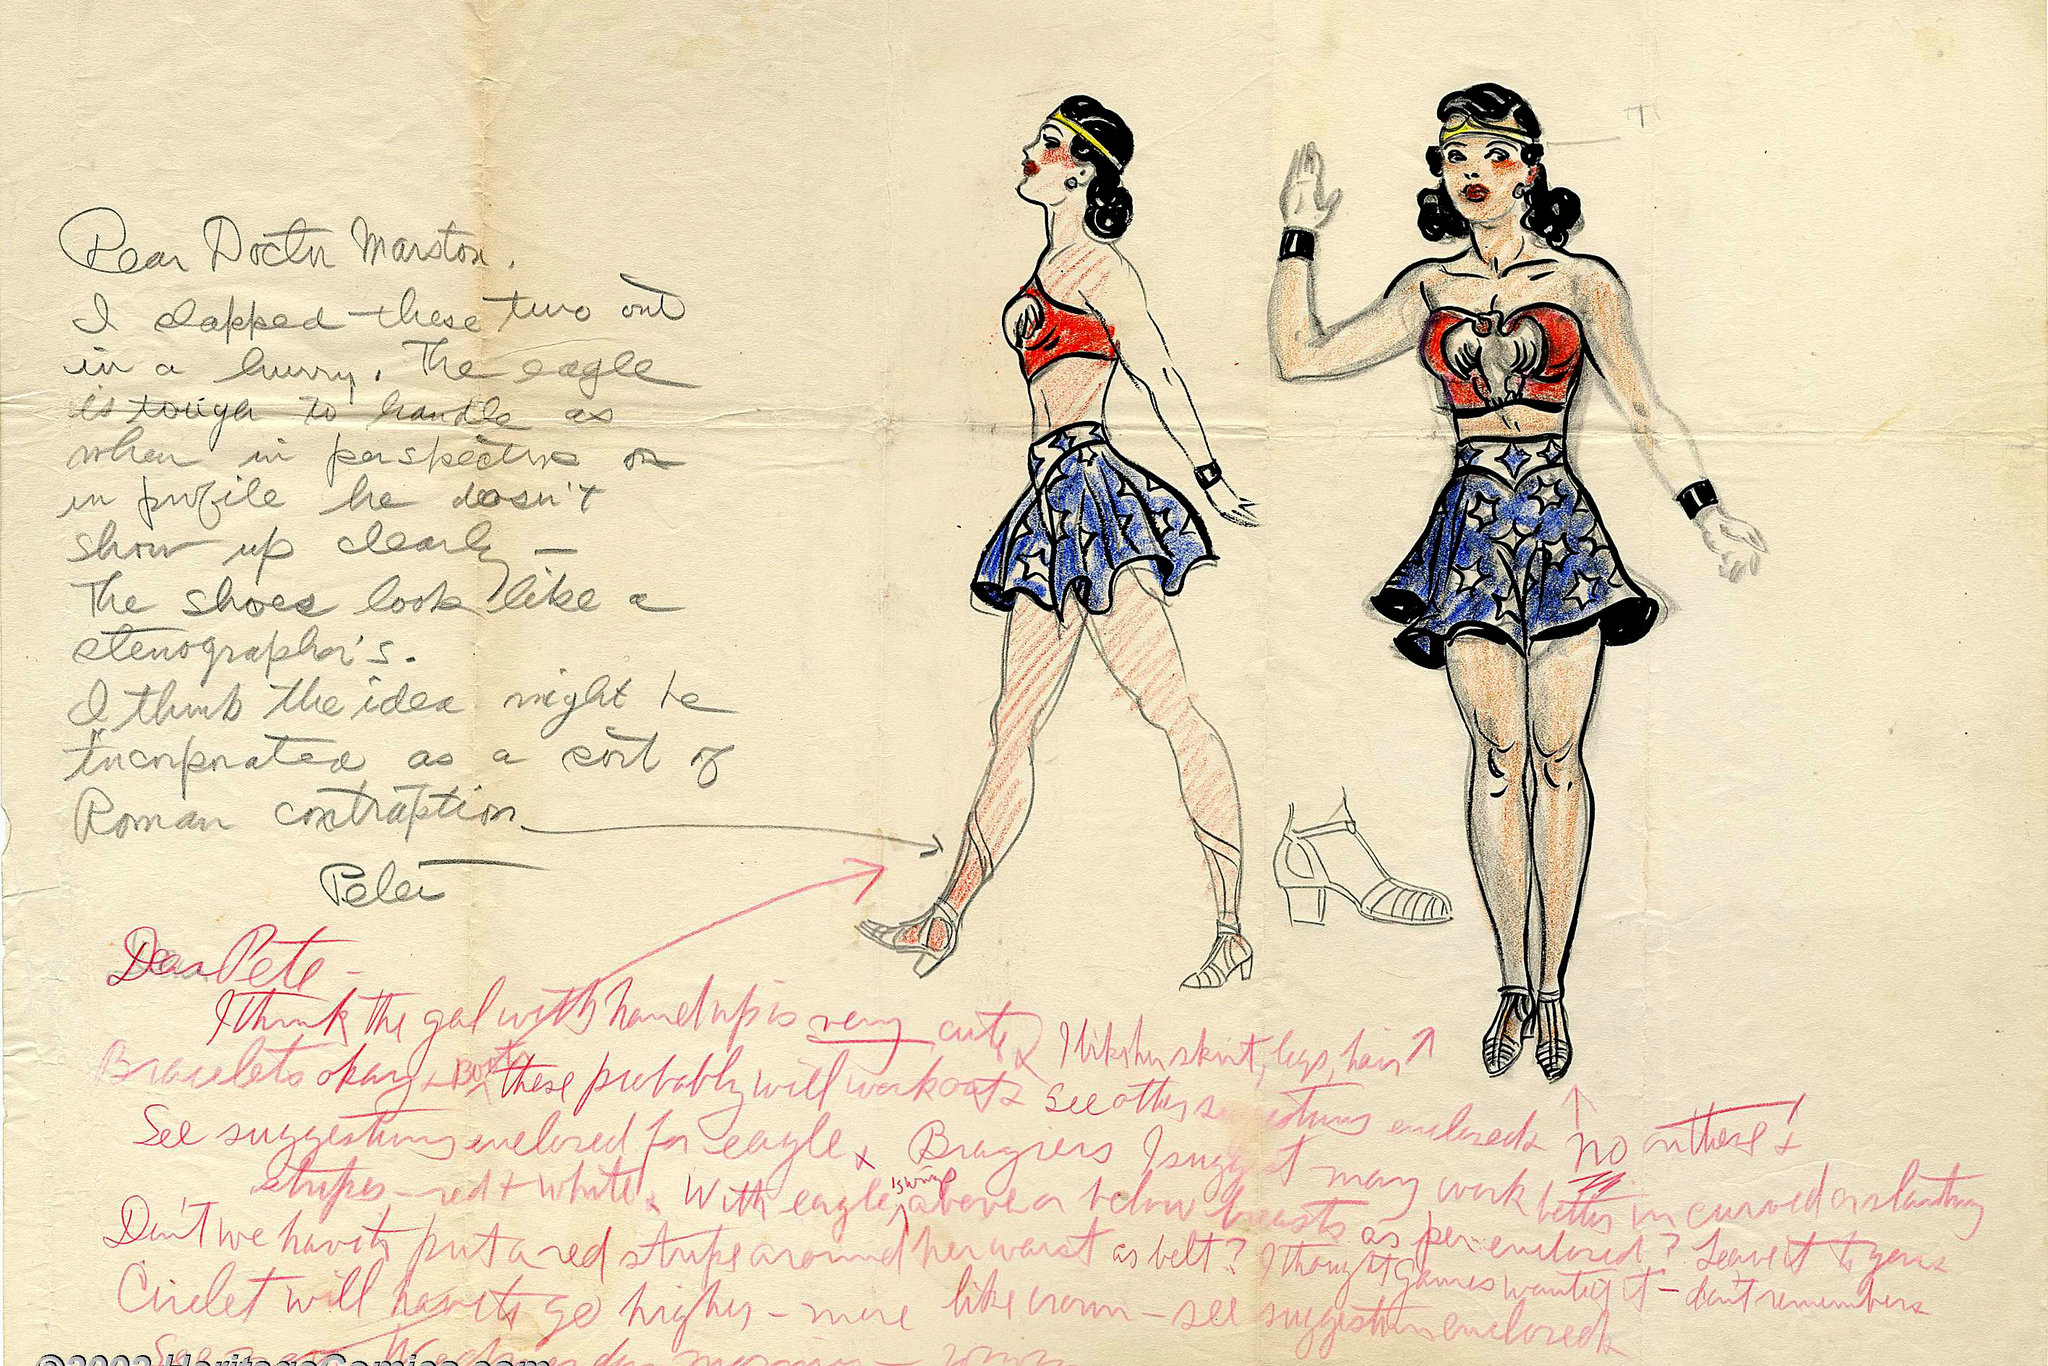 Dear Doctor Marston,
I slapped these two out
in a hurry. The eagle
is tough to handle as
when in perspective or
in profile he doesn't
show up clearly —
The shoes look like a
stenographer's.
I think the idea might be
incorporated as a sort of
Roman contraption
Peter
Dear Pete —
I think the gal with hand up is very cute. I like her skirt, legs, hair
Bracelets okay + Boots these probably will work out. See other suggestions enclosed. No on these!
See suggestions enclosed for eagle. I suggest may work better in curved or slanting
stripes — red + white. With eagle's wings above or below breasts as per enclosed? Leave it to you
Don't we have to put a red stripe around her waist as belt? I thought Gaines wanted it — don't remember.
Circlet will have to go higher — more like crown — see suggestions enclosed.
©2002 HeritageComics.com